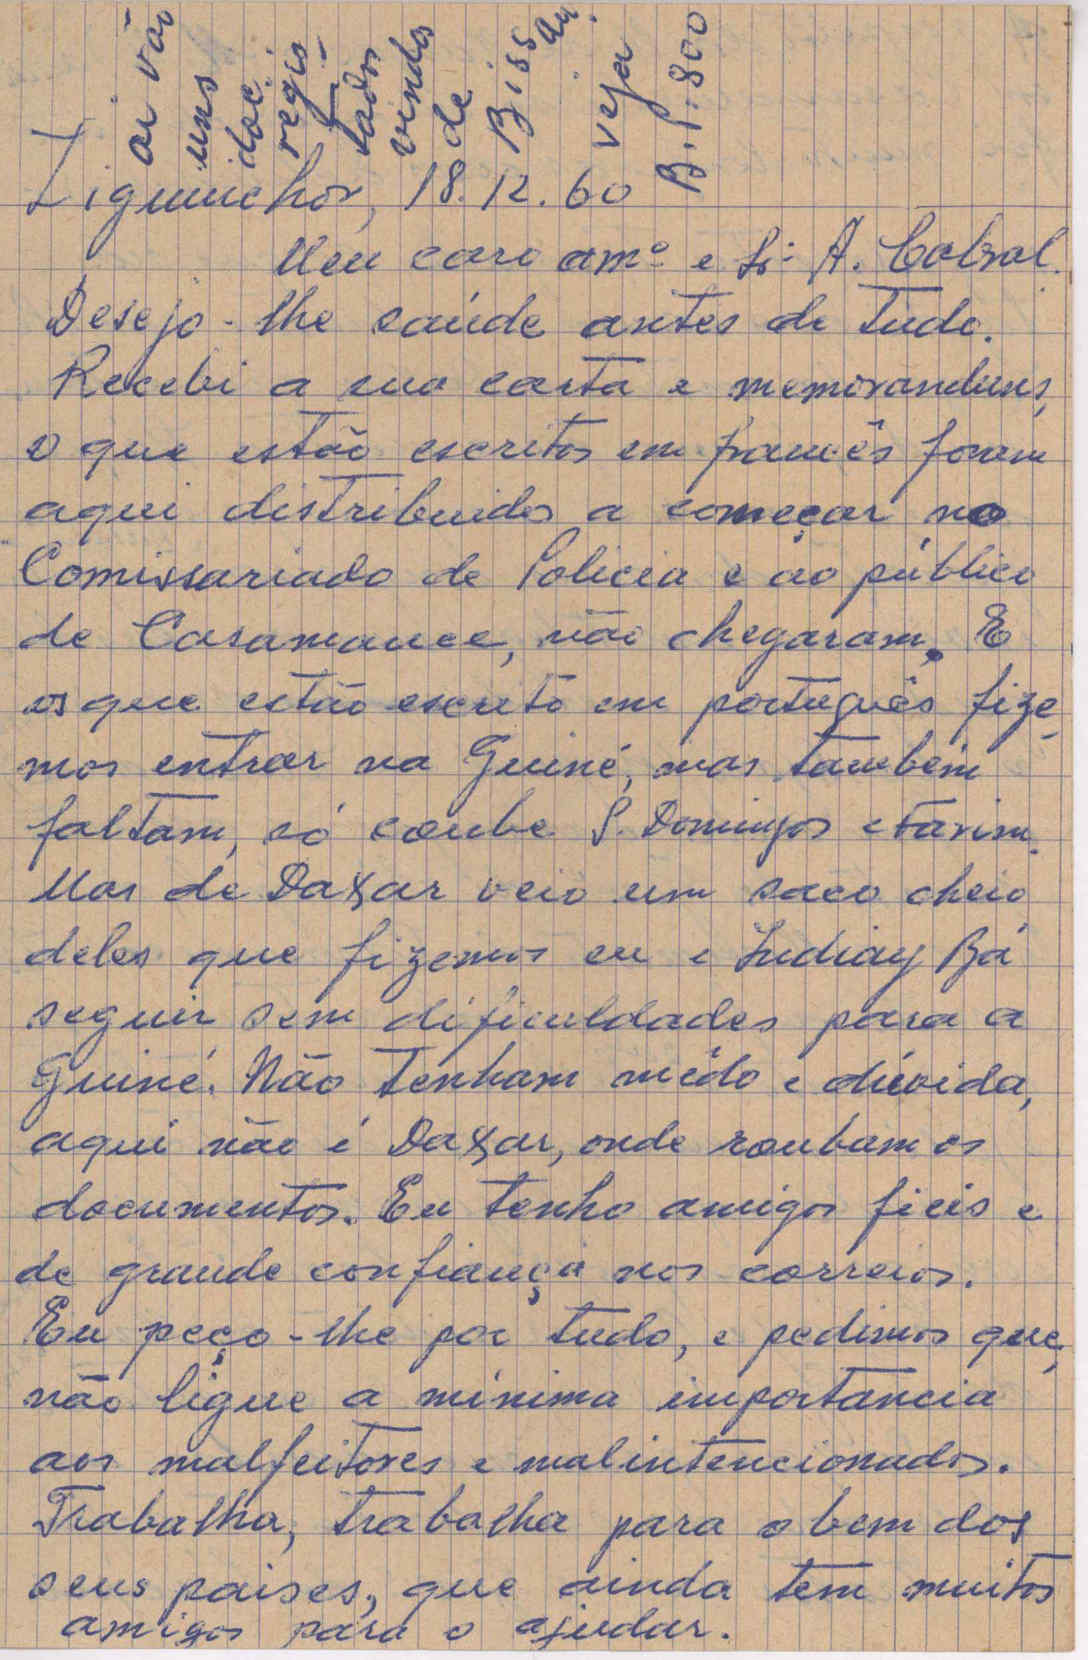 aí vão
uns
doc.
regis-
tados
vindos
de
Biss
au.
veja
B.P. 800
Ziguinchor, 18.12.60
Meu caro amº e Sr. A. Cabral.
Desejo-lhe saúde antes de tudo.
Recebi a sua carta e memoranduns,
o que estão escritos em francês foram
aqui distribuidos a começar no
Comissariado de Policia e ao público
de Casamance, não chegaram. E
os que estão escrito em português fize-
mos entrar na Guiné, mas também
faltam, só coube S. Domingos e Farim.
Mas de Daxar veio um saco cheio
deles que fizemos eu e Indiay Bá
seguir sem dificuldades para a
Guiné. Não tenham mêdo e dúvida,
aqui não é Daxar, onde roubam os
documentos. Eu tenho amigos fieis e
de grande confiança nos correios.
Eu peço-lhe por tudo, e pedimos que,
não ligue a minima importancia
aos malfeitores e malintencionados.
Trabalha, trabalha para o bem dos
seus paises, que ainda tem muitos
amigos para o ajudar.